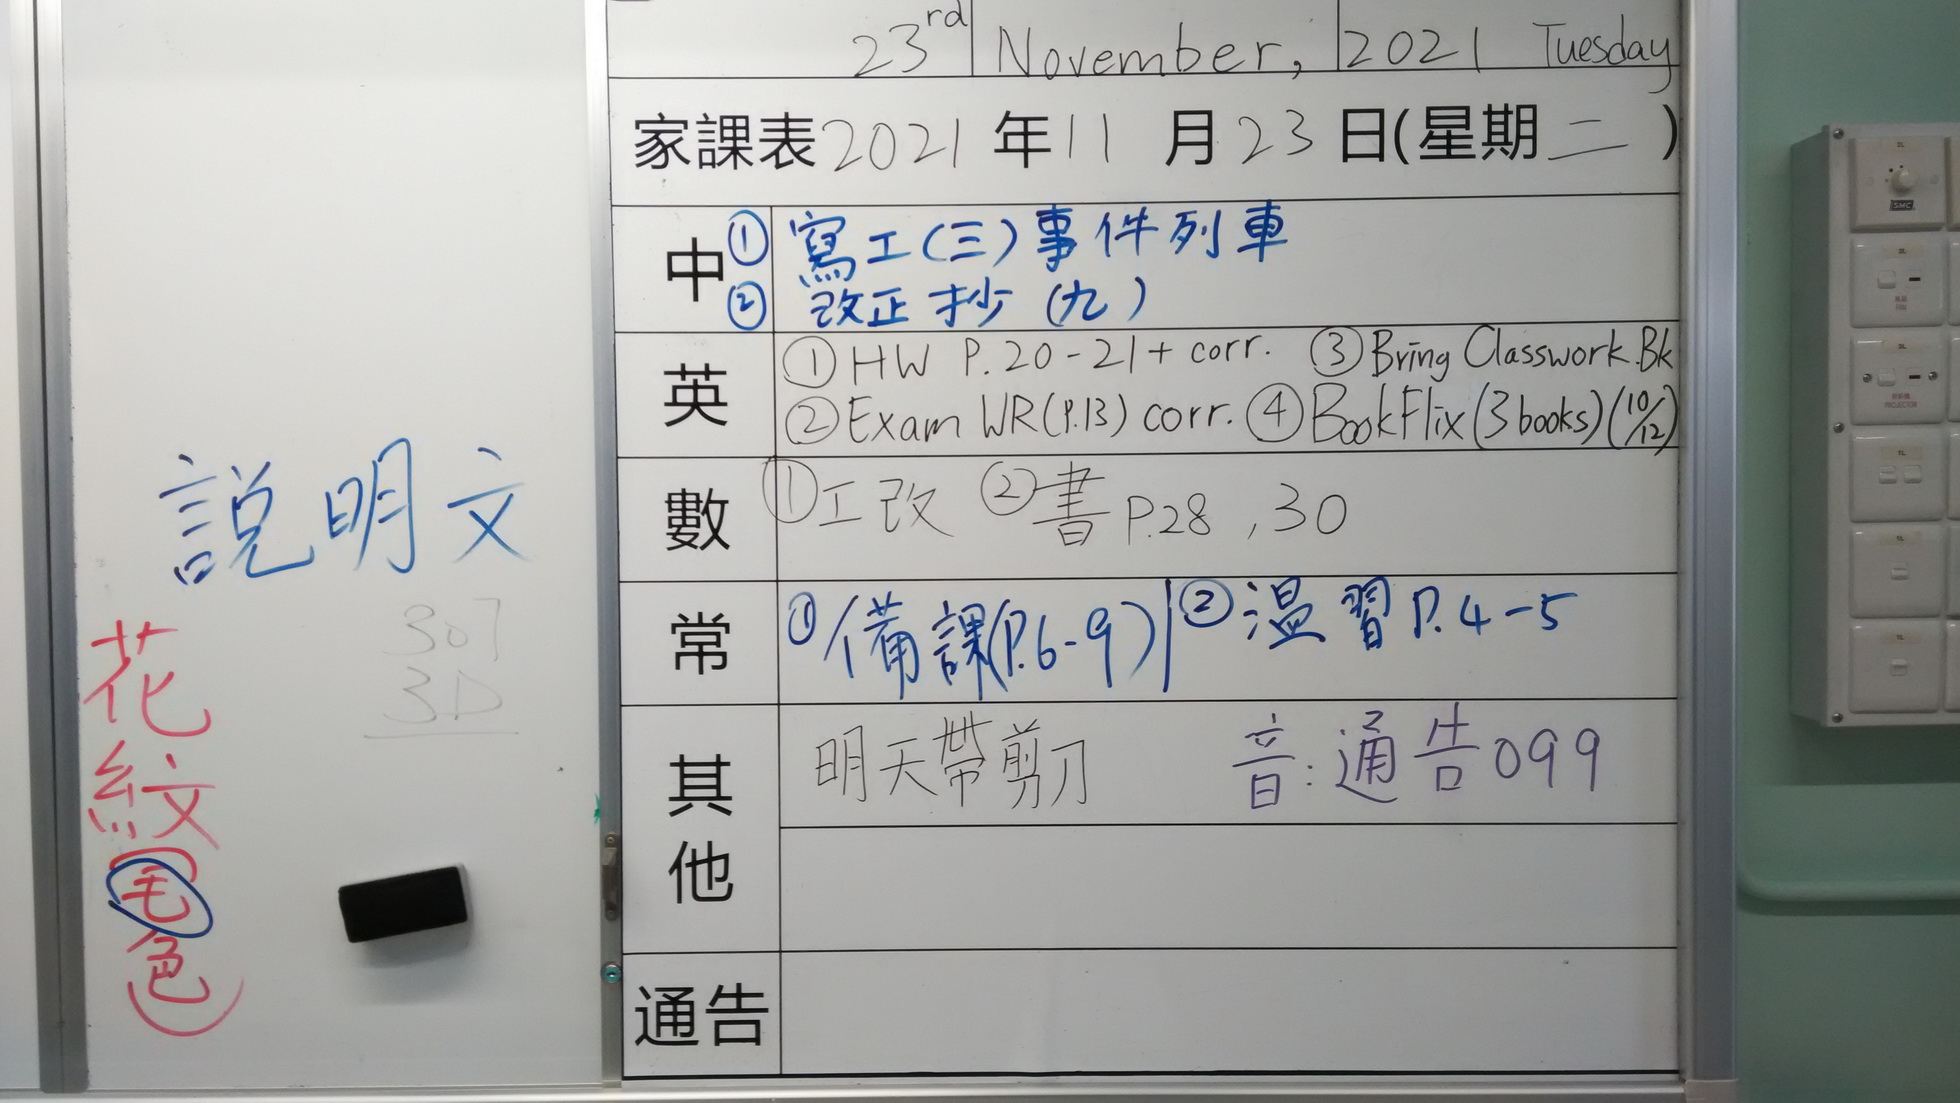 23rd November, 2021 Tuesday
家課表2021年11月23日(星期二)
中 ① 寫工(三)事件列車
② 改正 抄(九)
英 ① HW P.20-21+ corr. ③ Bring Classwork.Bk
② Exam WR(P.13) corr. ④ BookFlix(3 books)(10/12)
數 ①工改 ②書P.28,30
常 ①備課(P.6-9) ②溫習P.4-5
其他 明天帶剪刀 音:通告099
通告
説明文
307
3D
花紋
(毛色)